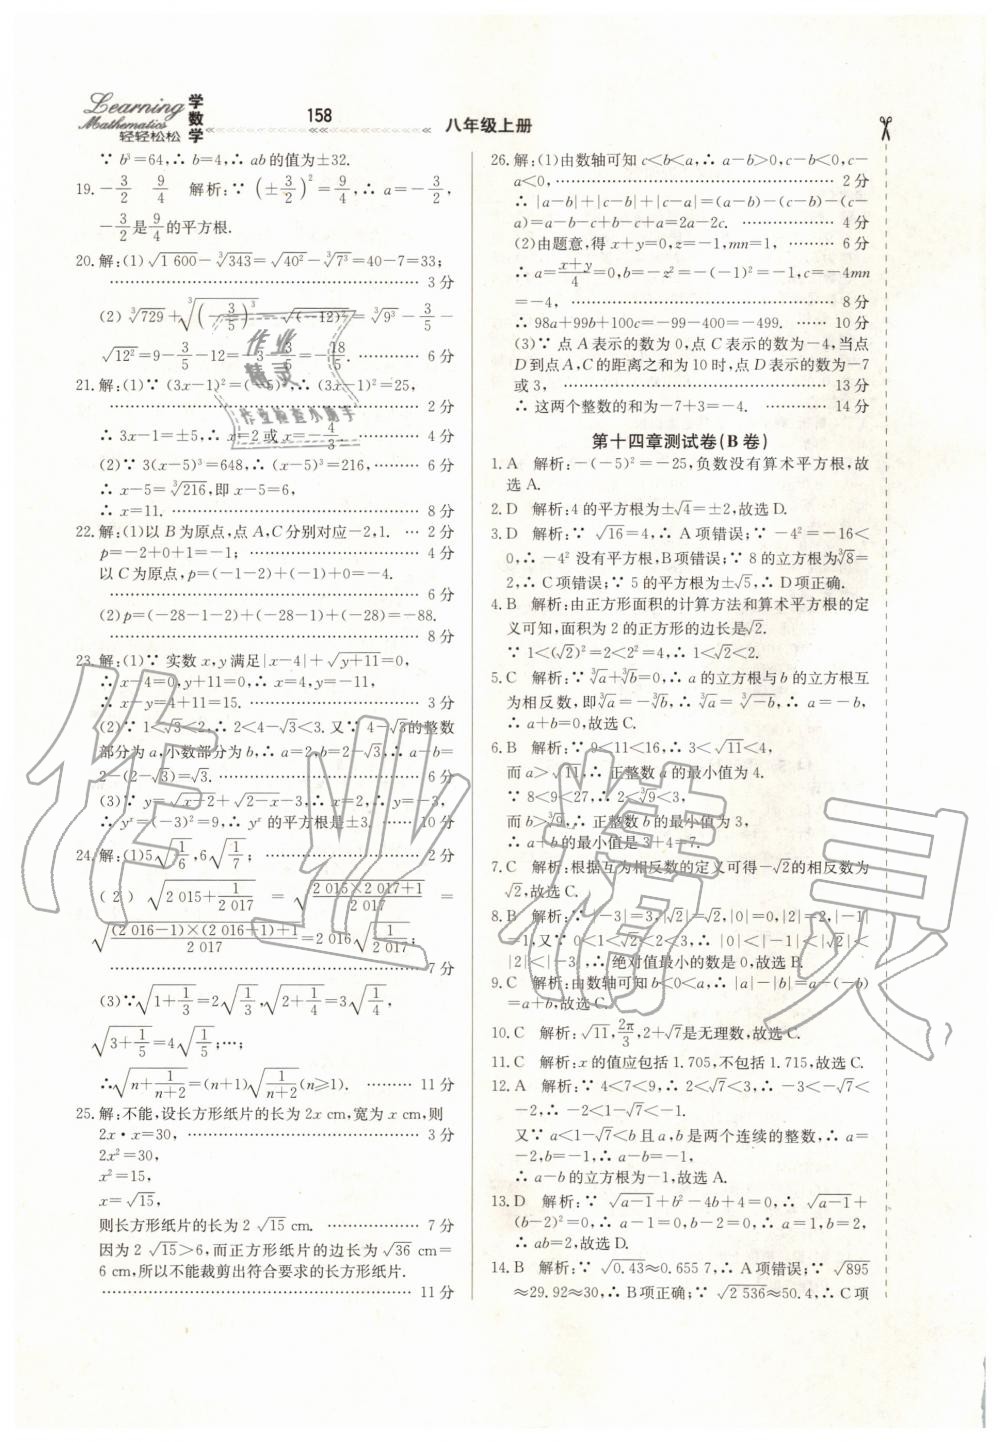 Learning
Mathematics
轻轻松松
学数学
158
八年级上册
∵ b³=64,∴ b=4,∴ ab的值为±32.
19.−3/2 9/4 解析:∵ (±3/2)²=9/4,∴ a=−3/2,
−3/2是9/4的平方根.
20.解:(1)√1 600−∛343=√40²−∛7³=40−7=33;
…… 3分
(2)∛729+∛(−3/5)³−√(−12)²=∛9³−3/5−
√12²=9−3/5−12=−3−3/5=−18/5. …… 6分
21.解:(1)∵ (3x−1)²=(−5)²,∴ (3x−1)²=25,
…… 2分
∴ 3x−1=±5,∴ x=2或x=−4/3. …… 4分
(2)∵ 3(x−5)³=648,∴ (x−5)³=216, …… 6分
∴ x−5=∛216,即x−5=6,
∴ x=11. …… 8分
22.解:(1)以B为原点,点A,C分别对应−2,1. … 2分
p=−2+0+1=−1; …… 4分
以C为原点,p=(−1−2)+(−1)+0=−4.
…… 6分
(2)p=(−28−1−2)+(−28−1)+(−28)=−88.
…… 8分
23.解:(1)∵ 实数x,y满足|x−4|+√(y+11)=0,
∴ x−4=0,y+11=0,∴ x=4,y=−11,
∴ x−y=4+11=15. …… 3分
(2)∵ 1<√3<2,∴ 2<4−√3<3.又∵ 4−√3的整数
部分为a,小数部分为b,∴ a=2,b=2−√3,∴ a−b=
2−(2−√3)=√3. …… 6分
(3)∵ y=√(x−2)+√(2−x)−3,∴ x=2,∴ y=−3,
∴ yˣ=(−3)²=9,∴ yˣ的平方根是±3. …… 10分
24.解:(1)5√(1/6),6√(1/7); …… 2分
(2) √(2 015+1/2 017) = √((2 015×2 017+1)/2 017) =
√(((2 016−1)×(2 016+1)+1)/2 017)=2 016√(1/2 017);
…… 7分
(3)∵√(1+1/3)=2√(1/3),√(2+1/4)=3√(1/4),
√(3+1/5)=4√(1/5);…;
∴√(n+1/(n+2))=(n+1)√(1/(n+2))(n≥1). …… 11分
25.解:不能,设长方形纸片的长为2x cm,宽为x cm,则
2x·x=30, …… 3分
2x²=30,
x²=15,
x=√15,
则长方形纸片的长为2√15 cm. …… 7分
因为2√15>6,而正方形纸片的边长为√36 cm=
6 cm,所以不能裁剪出符合要求的长方形纸片.
…… 11分
26.解:(1)由数轴可知c<b<a,∴ a−b>0,c−b<0,c−
a<0, …… 2分
∴ |a−b|+|c−b|+|c−a|=(a−b)−(c−b)−(c−
a)=a−b−c+b−c+a=2a−2c. …… 4分
(2)由题意,得x+y=0,z=−1,mn=1, …… 6分
∴ a=(x+y)/4=0,b=−z²=−(−1)²=−1,c=−4mn
=−4, …… 8分
∴ 98a+99b+100c=−99−400=−499. …… 10分
(3)∵ 点A表示的数为0,点C表示的数为−4,当点
D到点A,C的距离之和为10时,点D表示的数为−7
或3, …… 13分
∴ 这两个整数的和为−7+3=−4. …… 14分
第十四章测试卷(B卷)
1.A 解析:−(−5)²=−25,负数没有算术平方根,故
选A.
2.D 解析:4的平方根为±√4=±2,故选D.
3.D 解析:∵ √16=4,∴ A项错误;∵ −4²=−16<
0,∴ −4²没有平方根,B项错误;∵ 8的立方根为∛8=
2,∴ C项错误;∵ 5的平方根为±√5,∴ D项正确.
4.B 解析:由正方形面积的计算方法和算术平方根的定
义可知,面积为2的正方形的边长是√2.
∵ 1<(√2)²=2<2²=4,∴ 1<√2<2.
5.C 解析:∵ ∛a+∛b=0,∴ a的立方根与b的立方根互
为相反数,即∛a=−∛b,∴ ∛a=∛−b,∴ a=−b,
∴ a+b=0,故选C.
6.B 解析:∵ 9<11<16,∴ 3<√11<4,
而a>√11,∴ 正整数a的最小值为4.
∵ 8<9<27,∴ 2<∛9<3,
而b>∛9,∴ 正整数b的最小值为3,
∴ a+b的最小值是3+4=7.
7.C 解析:根据互为相反数的定义可得−√2的相反数为
√2,故选C.
8.B 解析:∵ |−3|=3,|√2|=√2,|0|=0,|2|=2,|−1|
=1,又∵ 0<1<√2<2<3,∴ |0|<|−1|<|√2|<
|2|<|−3|,∴ 绝对值最小的数是0,故选B.
9.C 解析:由数轴可知b<0<a,∴ |a|−|b|=a−(−b)
=a+b,故选C.
10.C 解析:√11,2π/3,2+√7是无理数,故选C.
11.C 解析:x的值应包括1.705,不包括1.715,故选C.
12.A 解析:∵ 4<7<9,∴ 2<√7<3,∴ −3<−√7<
−2,∴ −2<1−√7<−1.
又∵ a<1−√7<b且a,b是两个连续的整数,∴ a=
−2,b=−1,∴ a−b=−1,
∴ a−b的立方根为−1,故选A.
13.D 解析:∵ √(a−1)+b²−4b+4=0,∴ √(a−1)+
(b−2)²=0,∴ a−1=0,b−2=0,∴ a=1,b=2,
∴ ab=2,故选D.
14.B 解析:∵ √0.43≈0.655 7,∴ A项错误;∵ √895
≈29.92≈30,∴ B项正确;∵ √2 536≈50.4,∴ C项
作业精灵
作业检查小助手
作业精灵